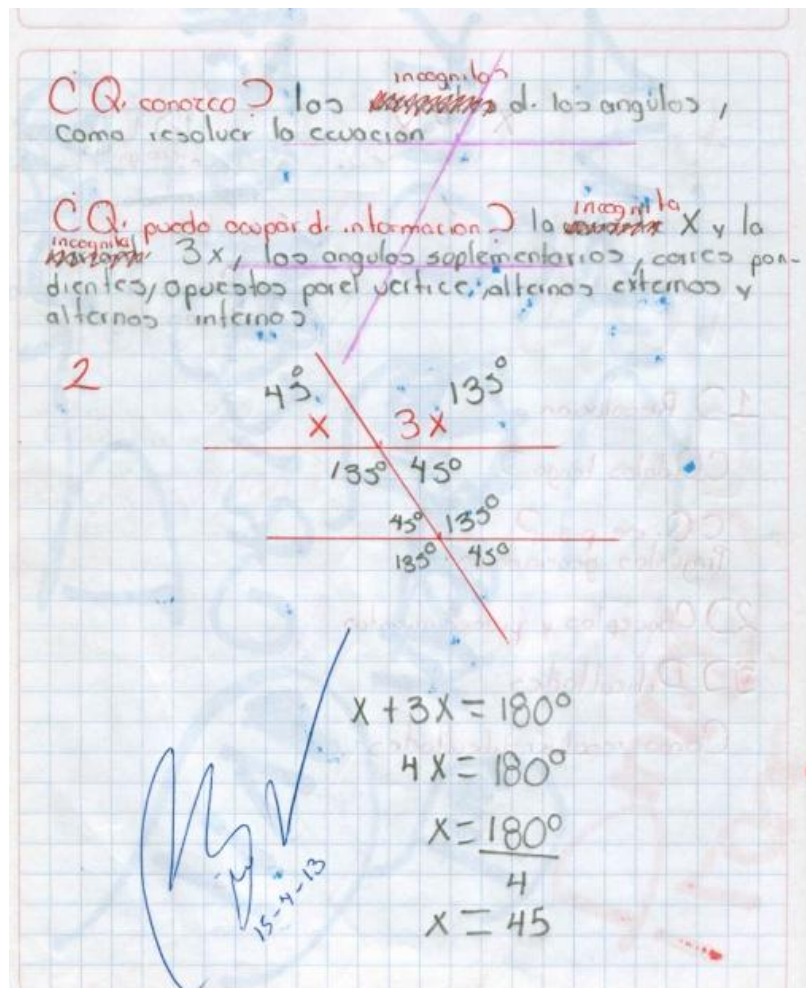 ¿Q. conozco? los incognitas d. los angulos,
como resolver la ecuacion
¿Q. puedo ocupar d. informacion? la incognita X y la
incognita 3x, los angulos suplementarios, corres pon-
dientes, opuestos por el vertice, alternos externos y
alternos internos
2
45° 135°
x 3x
135° 45°
45° 135°
135° 45°
x + 3x = 180°
4x = 180°
x = 180°
4
x = 45
15-4-13